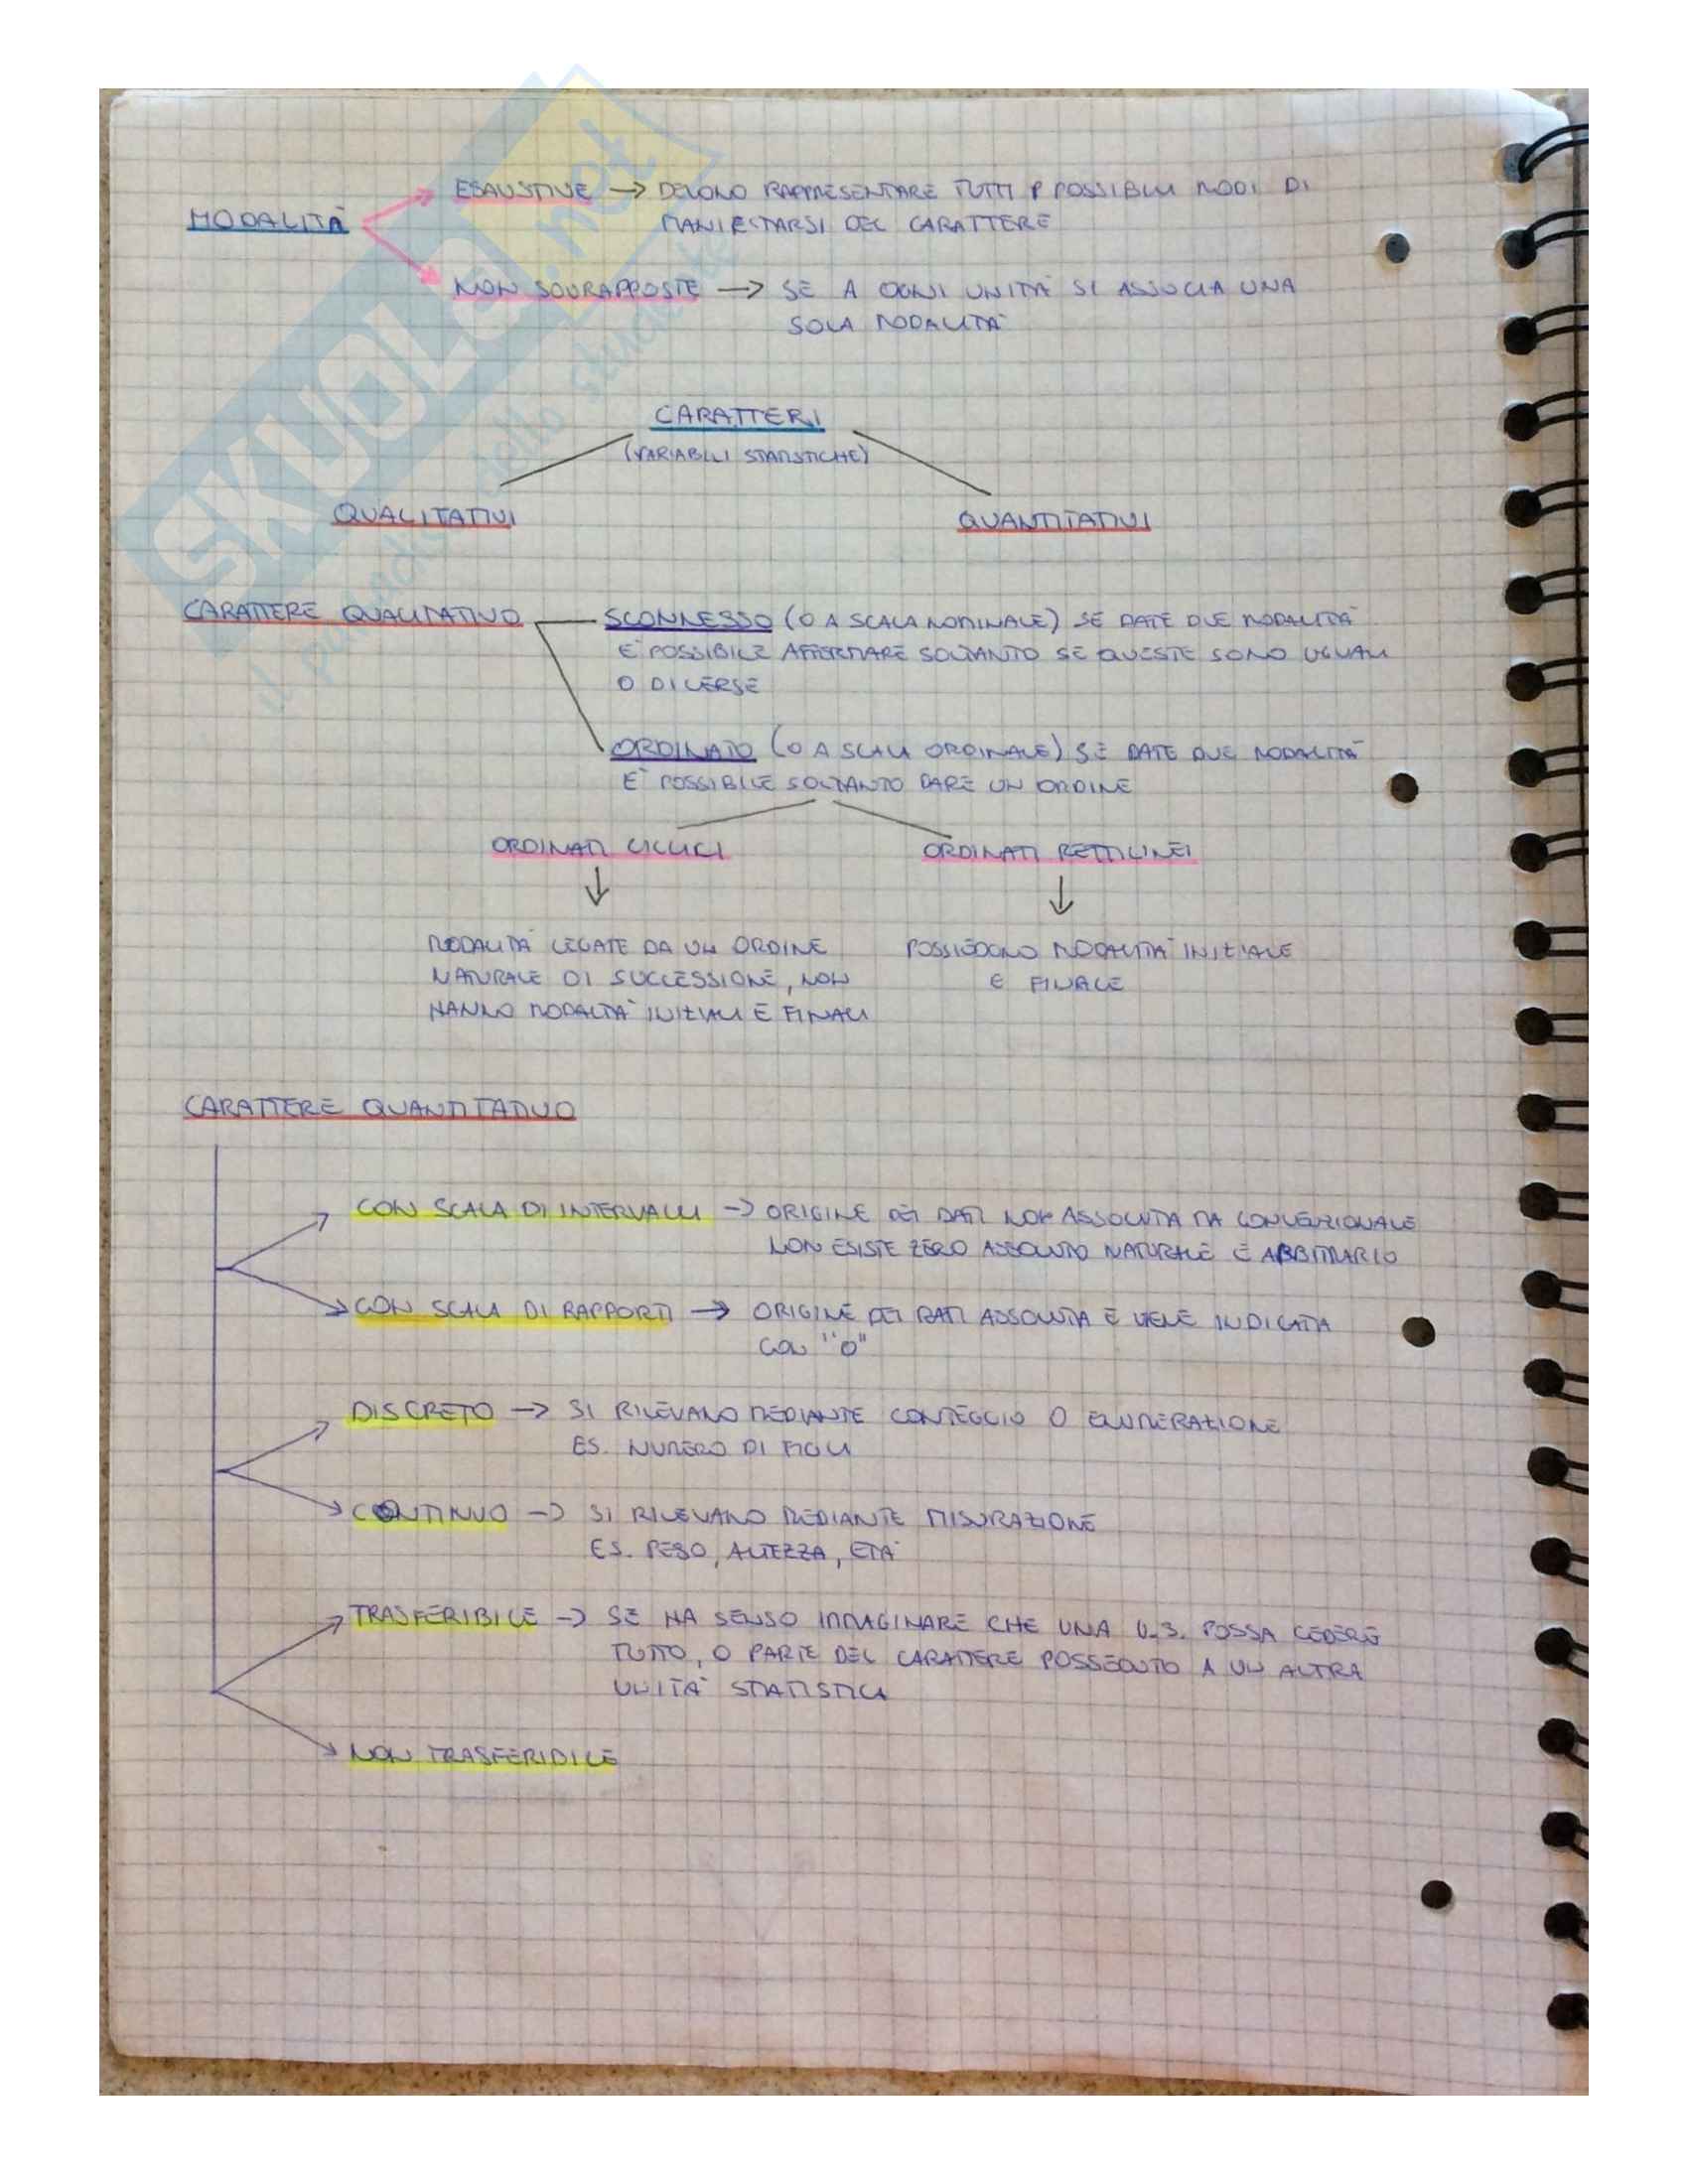 ESAUSTIVE → DEVONO RAPPRESENTARE TUTTI I POSSIBILI MODI DI
MODALITÀ
MANIFESTARSI DEL CARATTERE
NON SOVRAPPOSTE → SE A OGNI UNITÀ SI ASSOCIA UNA
SOLA MODALITÀ
CARATTERI
(VARIABILI STATISTICHE)
QUALITATIVI QUANTITATIVI
CARATTERE QUALITATIVO SCONNESSO (O A SCALA NOMINALE) SE DATE DUE MODALITÀ
E' POSSIBILE AFFERMARE SOLTANTO SE QUESTE SONO UGUALI
O DIVERSE
ORDINATO (O A SCALA ORDINALE) SE DATE DUE MODALITÀ
E' POSSIBILE SOLTANTO DARE UN ORDINE
ORDINATI CICLICI ORDINATI RETTILINEI
MODALITÀ LEGATE DA UN ORDINE POSSIEDONO MODALITÀ INIZIALE
NATURALE DI SUCCESSIONE, NON E FINALE
HANNO MODALITÀ INIZIALI E FINALI
CARATTERE QUANTITATIVO
CON SCALA DI INTERVALLI → ORIGINE DEI DATI NON ASSOLUTA MA CONVENZIONALE
NON ESISTE ZERO ASSOLUTO NATURALE E ARBITRARIO
CON SCALA DI RAPPORTI → ORIGINE DEI DATI ASSOLUTA E VIENE INDICATA
CON "0"
DISCRETO → SI RILEVANO MEDIANTE CONTEGGIO O ENUMERAZIONE
ES. NUMERO DI FIGLI
CONTINUO → SI RILEVANO MEDIANTE MISURAZIONE
ES. PESO, ALTEZZA, ETÀ
TRASFERIBILE → SE HA SENSO IMMAGINARE CHE UNA U.S. POSSA CEDERE
TUTTO, O PARTE DEL CARATTERE POSSEDUTO A UN ALTRA
UNITÀ STATISTICA
NON TRASFERIBILE
SKUOLA.net
il paradiso dello studente